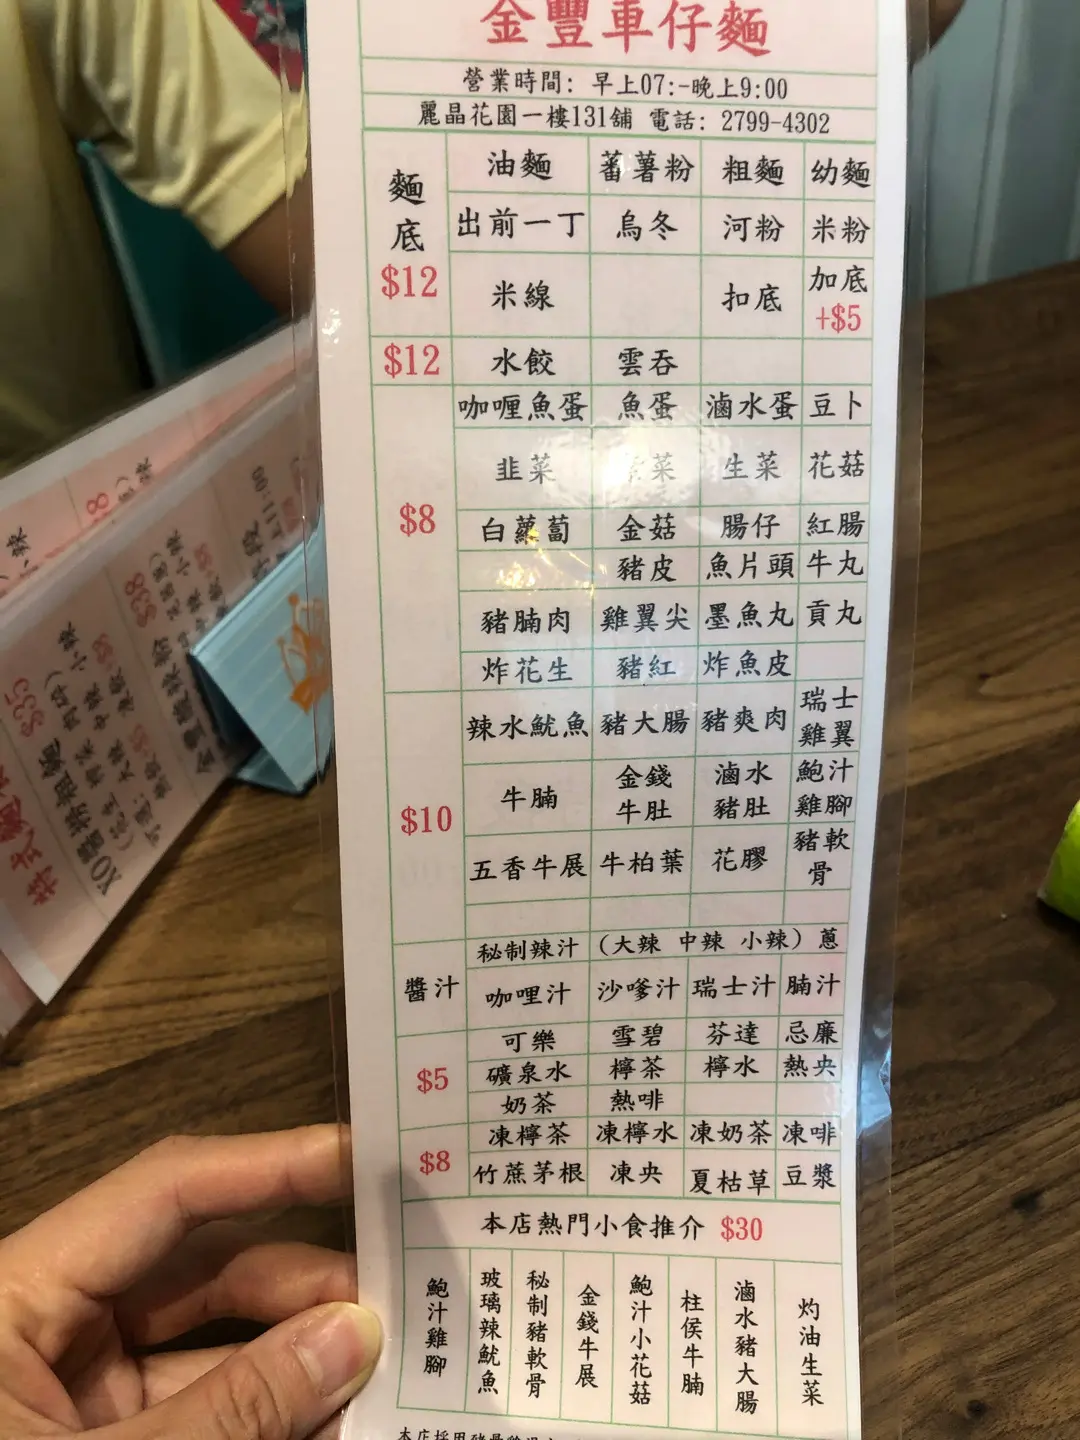 金豐車仔麵
營業時間: 早上07:-晚上9:00
麗晶花園一樓131舖 電話: 2799-4302
麵底 $12
油麵 蕃薯粉 粗麵 幼麵
出前一丁 烏冬 河粉 米粉
米線 扣底 加底 +$5
$12 水餃 雲吞
$8
咖喱魚蛋 魚蛋 滷水蛋 豆卜
韭菜 菜 生菜 花菇
白蘿蔔 金菇 腸仔 紅腸
豬皮 魚片頭 牛丸
豬腩肉 雞翼尖 墨魚丸 貢丸
炸花生 豬紅 炸魚皮
$10
辣水魷魚 豬大腸 豬爽肉 瑞士雞翼
牛腩 金錢牛肚 滷水豬肚 鮑汁雞腳
五香牛展 牛柏葉 花膠 豬軟骨
醬汁
秘制辣汁 (大辣 中辣 小辣) 蔥
咖哩汁 沙嗲汁 瑞士汁 腩汁
$5
可樂 雪碧 芬達 忌廉
礦泉水 檸茶 檸水 熱央
奶茶 熱啡
$8
凍檸茶 凍檸水 凍奶茶 凍啡
竹蔗茅根 凍央 夏枯草 豆漿
本店熱門小食推介 $30
鮑汁雞腳
玻璃辣魷魚
秘制豬軟骨
金錢牛展
鮑汁小花菇
柱侯牛腩
滷水豬大腸
灼油生菜